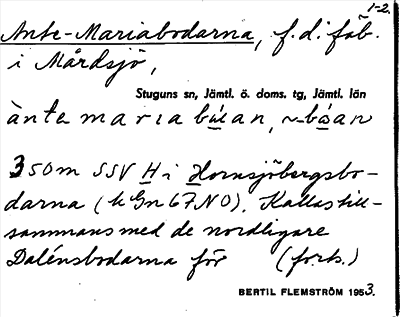 1-2.
Ante-Mariabodarna, f.d. fäb.
i Mårdsjö,
Stuguns sn, Jämtl. ö. doms. tg, Jämtl. län
àntemariabu̇an, ~bȧan
350m SSV H i Hornsjöbergsbo-
darna (k Gn 67 NO). Kallas till-
sammans med de nordligare
Dalénsbodarna för (forts.)
BERTIL FLEMSTRÖM 1953.